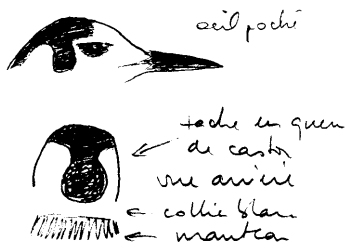 œil poché
tache en queue
de castor
vue arrière
collier blanc
manteau